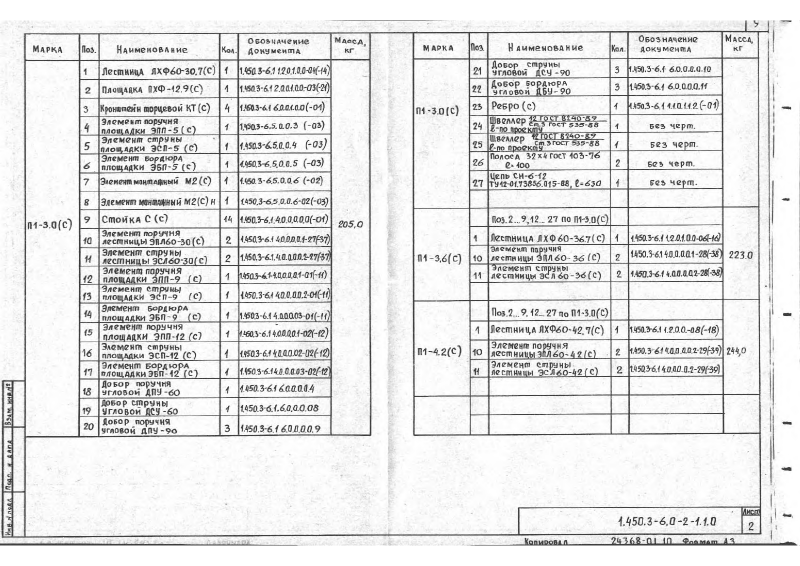 МАРКА Поз. НАИМЕНОВАНИЕ Кол. ОБОЗНАЧЕНИЕ ДОКУМЕНТА МАССА, КГ
П1-3.0(С) 205,0
1 Лестница ЛХФ60-30,7(С) 1 1.450.3-6.1.1.2.0.1.0.0-04(-14)
2 Площадка ПХФ-12.9(С) 1 1.450.3-6.1.2.0.0.1.0.0-03(-21)
3 Кронштейн торцевой КТ(С) 4 1.450.3-6.1.6.0.0.1.0.0(-01)
4 Элемент поручня площадки ЭПП-5(С) 1 1.450.3-6.5.0.0.3 (-03)
5 Элемент струны площадки ЭСП-5(С) 1 1.450.3-6.5.0.0.4 (-03)
6 Элемент бордюра площадки ЭБП-5(С) 1 1.450.3-6.5.0.0.5 (-03)
7 Элемент монтажный М2(С) 1 1.450.3-6.5.0.0.6 (-02)
8 Элемент монтажный М2(С)н 1 1.450.3-6.5.0.0.6-02(-03)
9 Стойка С (С) 14 1.450.3-6.1.4.0.0.0.0(-01)
10 Элемент поручня лестницы ЭПЛ60-30(С) 2 1.450.3-6.1.4.0.0.0.1-27(-37)
11 Элемент струны лестницы ЭСЛ60-30(С) 2 1.450.3-6.1.4.0.0.0.2-27(-37)
12 Элемент поручня площадки ЭПП-9 (С) 1 1.450.3-6.1.4.0.0.0.1-01(-11)
13 Элемент струны площадки ЭСП-9 (С) 1 1.450.3-6.1.4.0.0.0.2-01(-11)
14 Элемент бордюра площадки ЭБП-9 (С) 1 1.450.3-6.1.4.0.0.03-01(-11)
15 Элемент поручня площадки ЭПП-12(С) 1 1.450.3-6.1.4.0.0.0.1-02(-12)
16 Элемент струны площадки ЭСП-12(С) 1 1.450.3-6.1.4.0.0.02-02(-12)
17 Элемент бордюра площадки ЭБП-12(С) 1 1.450.3-6.1.4.0.0.0.03-02(-12)
18 Добор поручня угловой ДПУ-60 1 1.450.3-6.1.6.0.0.0.4
19 Добор струны угловой ДСУ-60 1 1.450.3-6.1.6.0.0.0.08
20 Добор поручня угловой ДПУ-90 3 1.450.3-6.1.6.0.0.0.9
МАРКА Поз. НАИМЕНОВАНИЕ Кол. ОБОЗНАЧЕНИЕ ДОКУМЕНТА МАССА, КГ
П1-3.0(С)
21 Добор струны угловой ДСУ-90 3 1.450.3-6.1.6.0.0.0.10
22 Добор бордюра угловой ДБУ-90 3 1.450.3-6.1.6.0.0.0.11
23 Ребро(С) 1 1.450.3-6.1.1.1.0.1.1.2(-01)
24 Швеллер 12 ГОСТ 8240-89 Ст3 ГОСТ 535-88 ℓ-по проекту 1 Без черт.
25 Швеллер 12 ГОСТ 8240-89 Ст3 ГОСТ 535-88 ℓ-по проекту 1 Без черт.
26 Полоса 32×4 ГОСТ 103-76 ℓ=100 2 Без черт.
27 Цепь СН-6-12 ТУ12-01.73856.015-88, ℓ=630 1 Без черт.
П1-3,6(С) 223.0
Поз.2...9,12...27 по П1-3.0(С)
1 Лестница ЛХФ60-36.7(С) 1 1.450.3-6.1.1.2.0.1.0.0-06(-16)
10 Элемент поручня лестницы ЭПЛ60-36(С) 2 1.450.3-6.1.4.0.0.0.1-28(-38)
11 Элемент струны лестницы ЭСЛ60-36(С) 2 1.450.3-6.1.4.0.0.0.2-28(-38)
П1-4.2(С) 244,0
Поз.2...9,12...27 по П1-3.0(С)
1 Лестница ЛХФ60-42,7(С) 1 1.450.3-6.1.1.2.0.0.-08(-18)
10 Элемент поручня лестницы ЭПЛ60-42(С) 2 1.450.3-6.1.4.0.0.0.2-29(-39)
11 Элемент струны лестницы ЭСЛ60-42(С) 2 1.450.3-6.1.4.0.0.0.2-29(-39)
Взам. инв.№
Подп. и дата
Инв.№ подл.
1.450.3-6.0-2-1.1.0
Лист
2
Копировал 24368-01 10 Формат А3